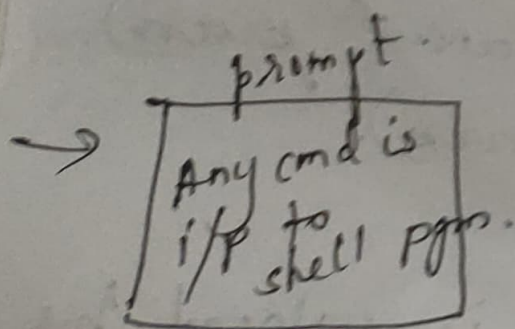 prompt...
Any cmd is
i/p to
shell pgm.